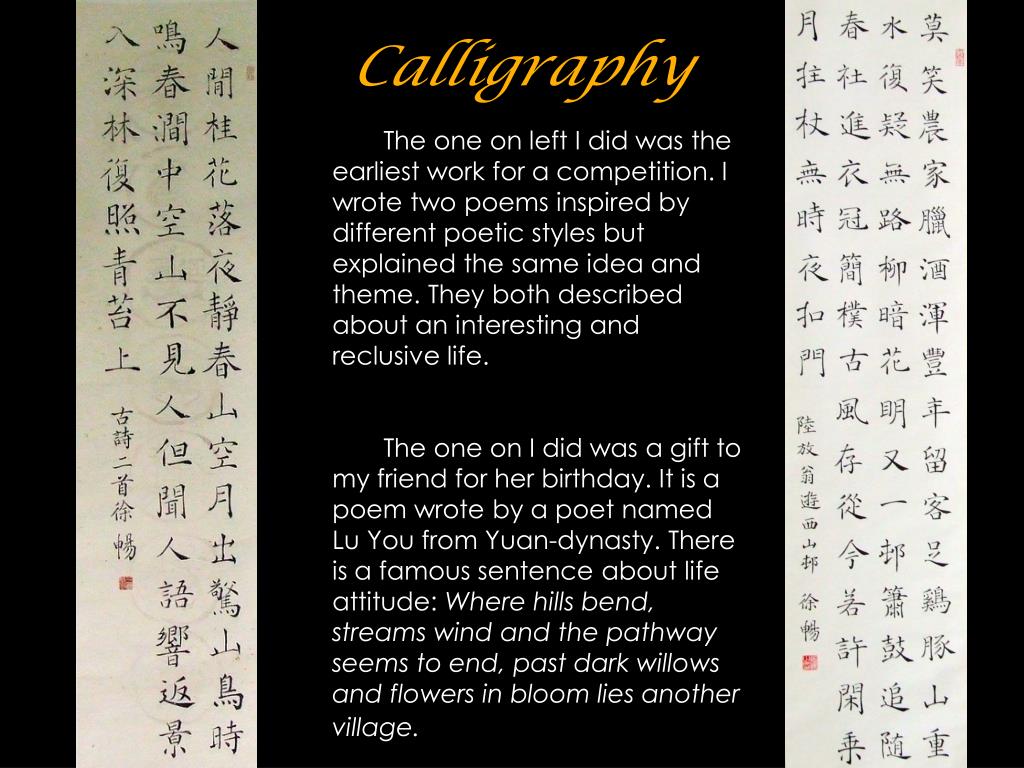 人閒桂花落夜靜春山空月出驚山鳥時
鳴春澗中空山不見人但聞人語響返景
入深林復照青苔上
古詩二首徐暢
Calligraphy
The one on left I did was the
earliest work for a competition. I
wrote two poems inspired by
different poetic styles but
explained the same idea and
theme. They both described
about an interesting and
reclusive life.
The one on I did was a gift to
my friend for her birthday. It is a
poem wrote by a poet named
Lu You from Yuan-dynasty. There
is a famous sentence about life
attitude: Where hills bend,
streams wind and the pathway
seems to end, past dark willows
and flowers in bloom lies another
village.
莫笑農家臘酒渾豐年留客足鷄豚山重
水復疑無路柳暗花明又一邨簫鼓追随
春社進衣冠簡樸古風存從今若許閑乗
月拄杖無時夜扣門
陸放翁遊西山邨 徐暢